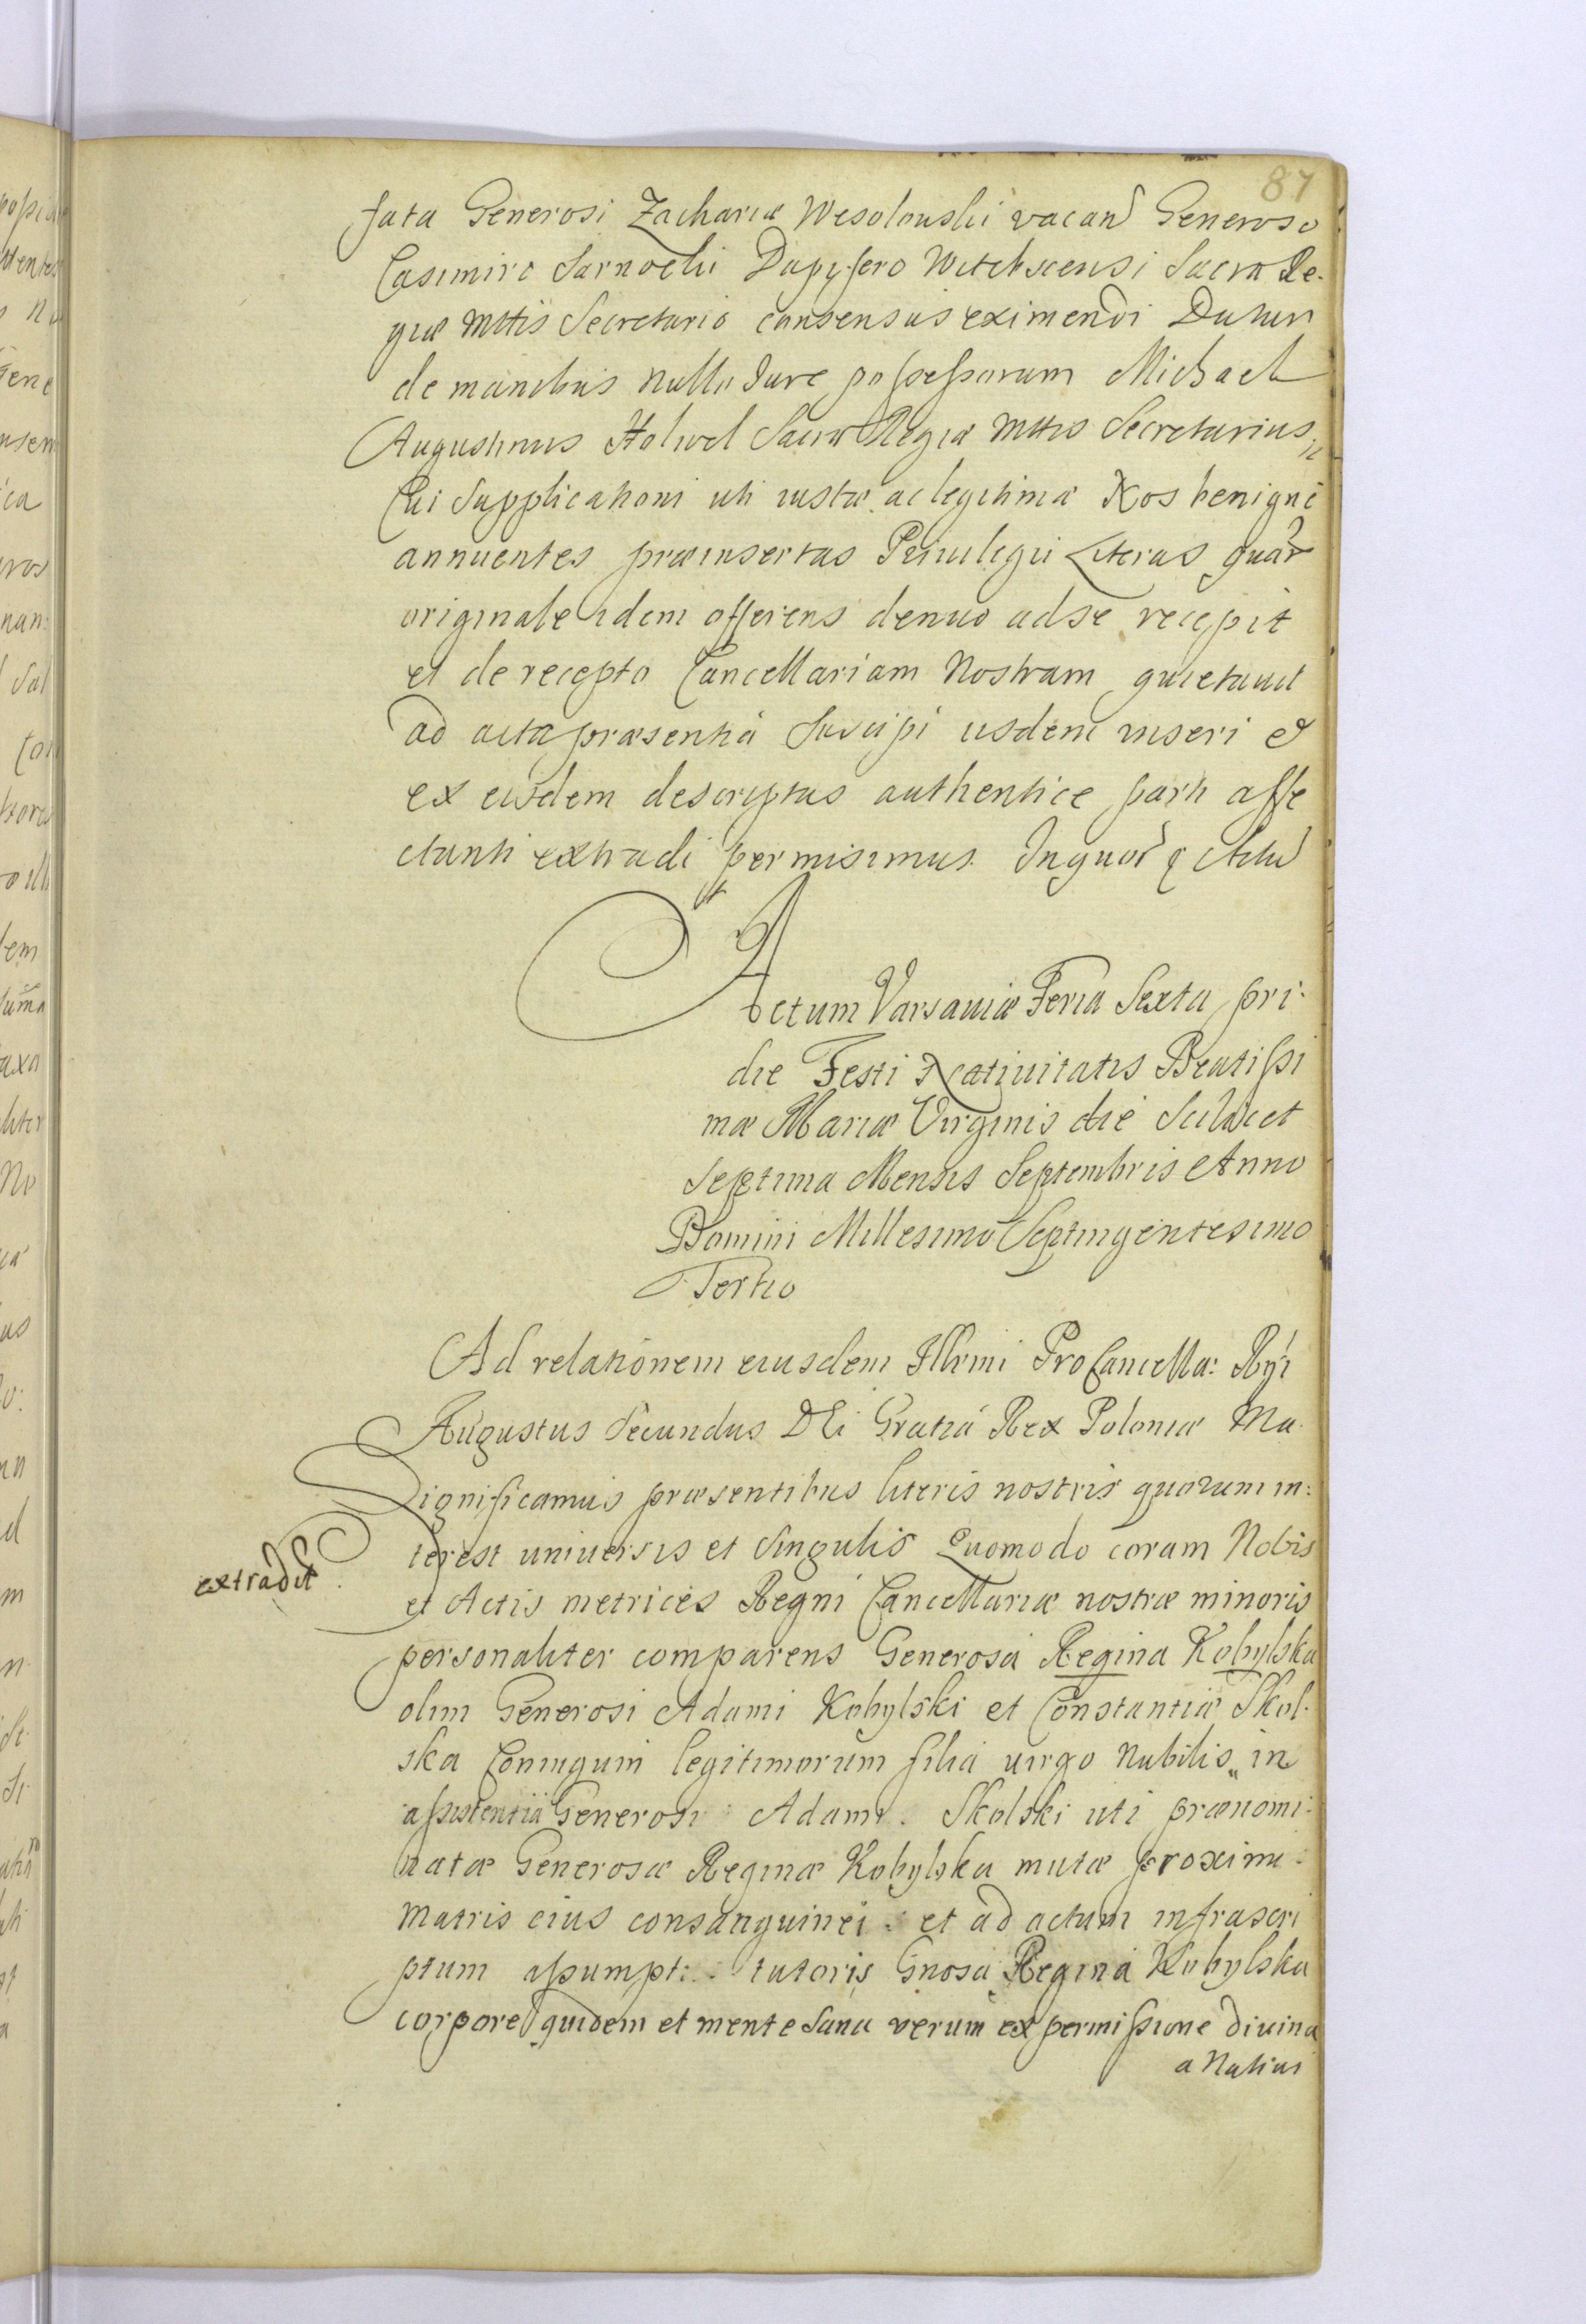 87
fata Generosi Zachariæ Wesolouski vacan Generoso
Casimiro Sarnocki Dapyfero Witebscensi Sacræ Re.
giæ Mttis Secretario consensus eximendi Datur
de manibus nullo Jure possessorum Michael
Augustinus Holwel Sacræ Regiæ Mttis Secretarius,,
Cui Supplicationi uti iustæ ac legitimæ Nos benigne
annuentes præinsertas Priuilegii Literas quar
originale idem offerens denuo ad se recepit
et de recepto Cancellariam Nostram quietauit
ad acta præsentia Suscipi iisdem inseri et
ex eisdem descriptas authentice parti affe
ctanti extradi permisimus. In quor Actu
Actum Varsauiæ Feria Sexta pri:
die Festi Natiuitatis Beatissi
mæ Mariæ Virginis die Scilicet
Septima Mensis Septembris Anno
Domini Millesimo Septingentesimo
Tertio
Ad relationem eiusdem Illrmi ProCancella: Rgi
Augustus Secundus DEi Gratia Rex Poloniæ Ma.
Significamus præsentibus literis nostris quorum in:
terest uniuersis et Singulis Quomodo coram Nobis
extradit
et Actis metrices Regni Cancellariæ nostræ minoris
personaliter comparens Generosa Regina Kobylska
olim Generosi Adami Kobylski et Constantiæ Skol.
ska Coniugum legitimorum filia uirgo Nubilis,, in
assistentia Generosi Adami Skolski uti prænomi:
natæ Generosæ Reginæ Kobylska mutæ proximi:
Matris eius consanguinei: et ad actum infrascri
ptum assumpt: tutoris Gnosa Regina Kobylska
corpore quidem et mente Sana verum ex permissione diuina
a Natiui